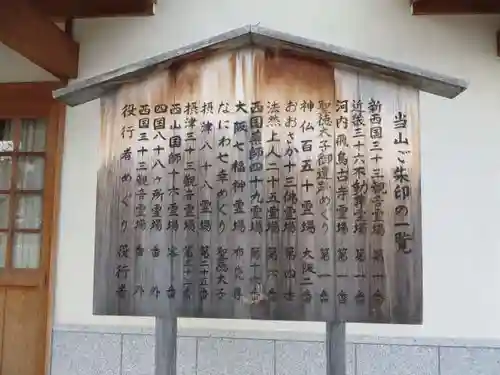 当山ご朱印の一覧
新西国三十三観音霊場 第一番
近畿三十六不動尊霊場 第一番
河内飛鳥古寺霊場 第一番
聖徳太子御遺跡めぐり 第一番
神仏百五十霊場 大阪二番
おおさか十三佛霊場 第四番
法然上人二十五霊場 第六番
西国薬師四十九霊場 番
大阪七福神霊場 布袋尊
なにわ七幸めぐり 聖徳太子
摂津八十八霊場 第二十五番
摂津三十三観音霊場 番
西山国師十六霊場 客番
四国八十八ヶ所霊場 番外
西国三十三観音霊場 番外
役行者めぐり 役行者